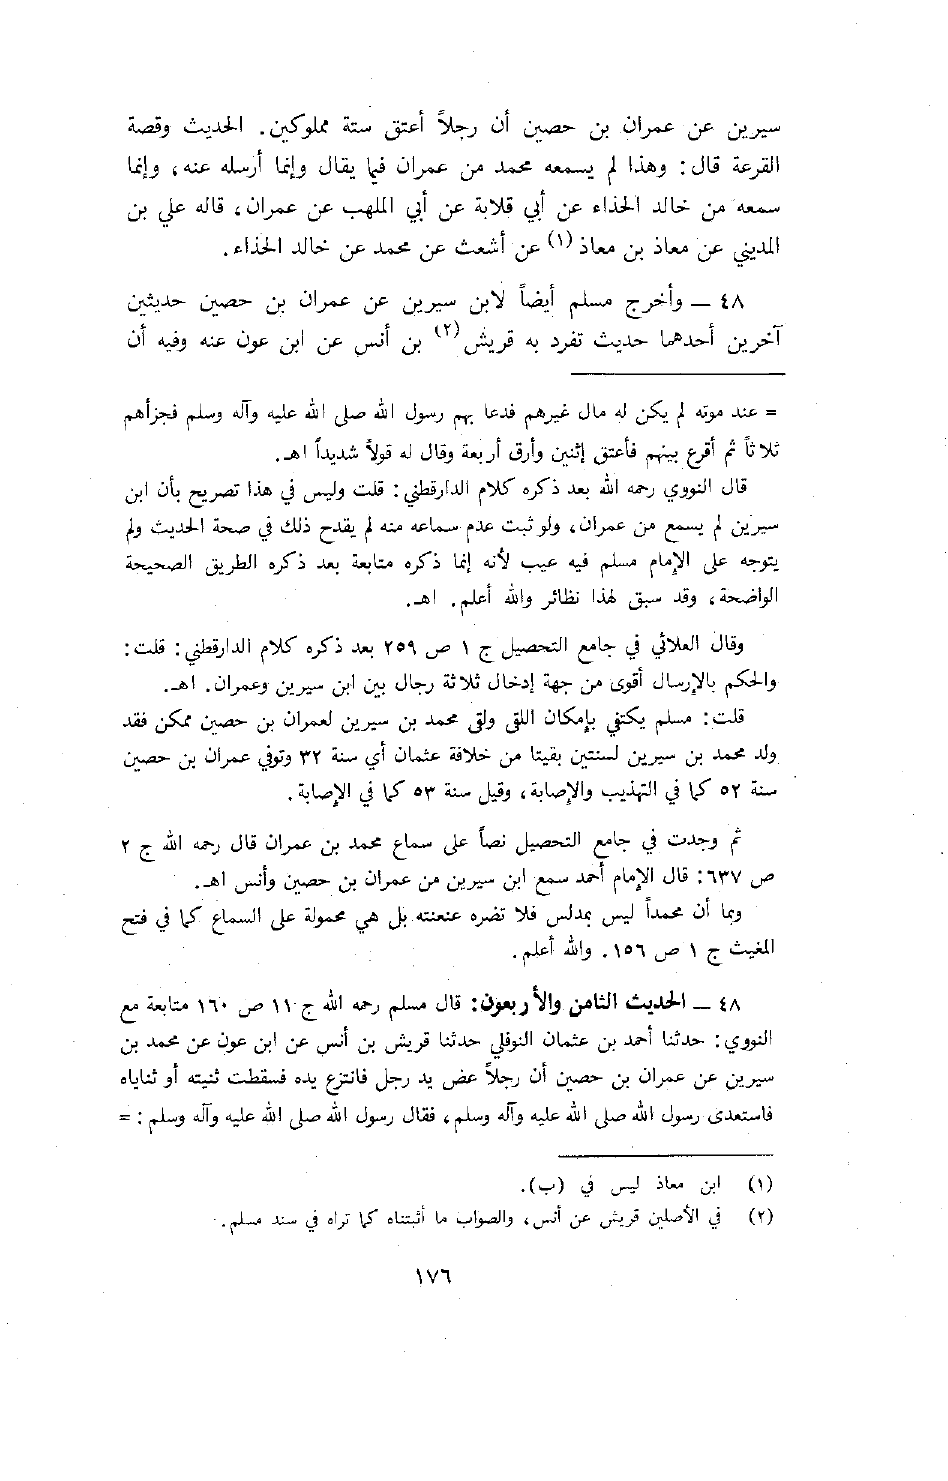 سيرين عن عمران بن حصين أن رجلاً أعتق ستة مملوكين. الحديث وقصة
القرعة قال: وهذا لم يسمعه محمد من عمران فيما يقال وإنما أرسله عنه، وإنما
سمعه من خالد الحذاء عن أبي قلابة عن أبي الملهب عن عمران، قاله علي بن
المديني عن معاذ بن معاذ (١) عن أشعث عن محمد عن خالد الحذاء.
٤٨ ــ وأخرج مسلم أيضاً لابن سيرين عن عمران بن حصين حديثين
آخرين أحدهما حديث تفرد به قريش (٢) بن أنس عن ابن عون عنه وفيه أن
= عند موته لم يكن له مال غيرهم فدعا بهم رسول الله صلى الله عليه وآله وسلم فجزأهم
ثلاثاً ثم أقرع بينهم فأعتق إثنين وأرق أربعة وقال له قولاً شديداً اهـ.
قال النووي رحمه الله بعد ذكره كلام الدارقطني: قلت وليس في هذا تصريح بأن ابن
سيرين لم يسمع من عمران، ولو ثبت عدم سماعه منه لم يقدح ذلك في صحة الحديث ولم
يتوجه على الإمام مسلم فيه عيب لأنه إنما ذكره متابعة بعد ذكره الطريق الصحيحة
الواضحة، وقد سبق لهذا نظائر والله أعلم. اهـ.
وقال العلائي في جامع التحصيل ج ١ ص ٢٥٩ بعد ذكره كلام الدارقطني: قلت:
والحكم بالإرسال أقوى من جهة إدخال ثلاثة رجال بين ابن سيرين وعمران. اهـ.
قلت: مسلم يكتفي بإمكان اللقى ولقى محمد بن سيرين لعمران بن حصين ممكن فقد
ولد محمد بن سيرين لسنتين بقيتا من خلافة عثمان أي سنة ٣٢ وتوفي عمران بن حصين
سنة ٥٢ كما في التهذيب والإصابة، وقيل سنة ٥٣ كما في الإصابة.
ثم وجدت في جامع التحصيل نصاً على سماع محمد بن عمران قال رحمه الله ج ٢
ص ٦٣٧: قال الإمام أحمد سمع ابن سيرين من عمران بن حصين وأنس اهـ.
وبما أن محمداً ليس بمدلس فلا تضره عنعنته بل هي محمولة على السماع كما في فتح
المغيث ج ١ ص ١٥٦. والله أعلم.
٤٨ ــ الحديث الثامن والأربعون: قال مسلم رحمه الله ج ١١ ص ١٦٠ متابعة مع
النووي: حدثنا أحمد بن عثمان النوفلي حدثنا قريش بن أنس عن ابن عون عن محمد بن
سيرين عن عمران بن حصين أن رجلاً عض يد رجل فانتزع يده فسقطت ثنيته أو ثناياه
فاستعدى رسول الله صلى الله عليه وآله وسلم، فقال رسول الله صلى الله عليه وآله وسلم: =
(١) ابن معاذ ليس في (ب).
(٢) في الأصلين قريش عن أنس، والصواب ما أثبتناه كما تراه في سند مسلم.
١٧٦